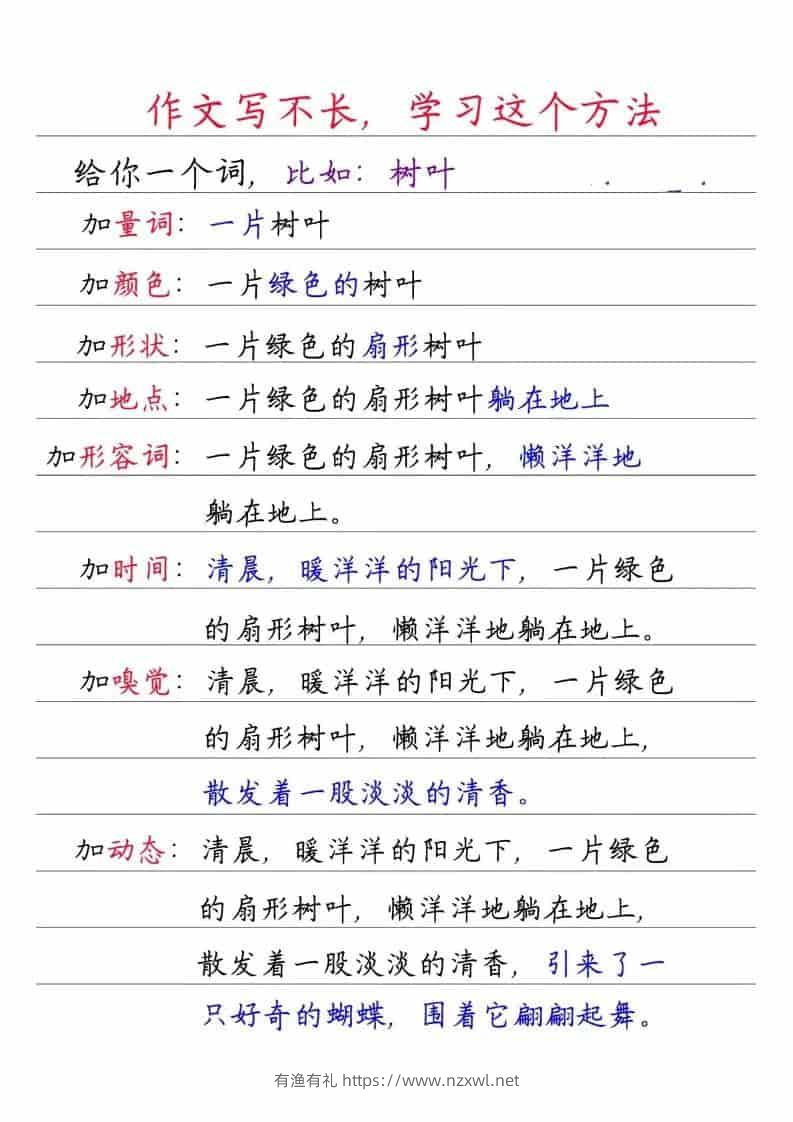 作文写不长，学习这个方法
给你一个词，比如：树叶
加量词：一片树叶
加颜色：一片绿色的树叶
加形状：一片绿色的扇形树叶
加地点：一片绿色的扇形树叶躺在地上
加形容词：一片绿色的扇形树叶，懒洋洋地
躺在地上。
加时间：清晨，暖洋洋的阳光下，一片绿色
的扇形树叶，懒洋洋地躺在地上。
加嗅觉：清晨，暖洋洋的阳光下，一片绿色
的扇形树叶，懒洋洋地躺在地上，
散发着一股淡淡的清香。
加动态：清晨，暖洋洋的阳光下，一片绿色
的扇形树叶，懒洋洋地躺在地上，
散发着一股淡淡的清香，引来了一
只好奇的蝴蝶，围着它翩翩起舞。
有渔有礼 https://www.nzxwl.net